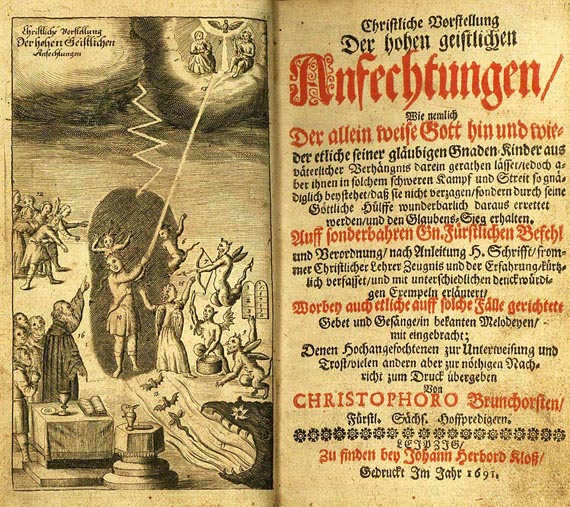 Christliche Vorstellung
Der hohen Geistlichen
Anfechtungen
Christliche Vorstellung
Der hohen geistlichen
Anfechtungen/
Wie nemlich
Der allein weise Gott hin und wie-
der etliche seiner gläubigen Gnaden-Kinder aus
väterlicher Verhängnis darein gerathen lässet/iedoch a-
ber ihnen in solchem schweren Kampf und Streit so gnä-
diglich beystehet/daß sie nicht verzagen/sondern durch seine
Göttliche Hülffe wunderbarlich daraus errettet
werden/und den Glaubens-Sieg erhalten.
Auff sonderbahren Gn. Fürstlichen Befehl
und Verordnung/nach Anleitung H. Schrifft/from-
mer Christlicher Lehrer Zeugnis und der Erfahrung/kürtz-
lich verfasset/und mit unterschiedlichen denckwürdi-
gen Exempeln erläutert/
Worbey auch etliche auff solche Fälle gerichtete
Gebet und Gesänge/in bekanten Melodeyen/
mit eingebracht;
Denen Hochangefochtenen zur Unterweisung und
Trost/vielen andern aber zur nöthigen Nach-
richt zum Druck übergeben
Von
CHRISTOPHORO Brunchorsten/
Fürstl. Sächs. Hoffpredigern.
LEIPZIG/
Zu finden bey Johann Herbord Kloß/
Gedruckt Im Jahr 1691.